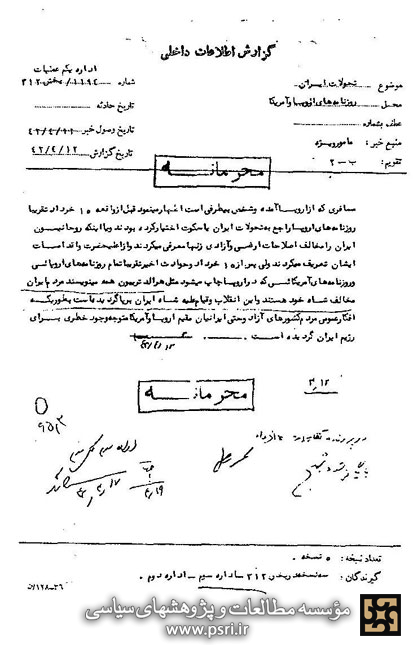 گزارش اطلاعات داخلی
اداره یکم عملیات
شماره ۳۱۲/۱۱۹۴ بخش
موضوع تحولات ایران
محل روزنامه‌های اروپا و آمریکا
تاریخ حادثه
عطف بشماره
منبع خبر: مامور ویژه
تاریخ وصول خبر ۴۲/۴/۱۱
تقویم: ب-۲
تاریخ گزارش ۴۲/۴/۱۲
محرمانه
مسافری که از اروپا آمده و شخص بیطرفی است اظهار مینمود قبل از واقعه ۱۵ خرداد تقریبا
روزنامه‌های اروپا راجع به تحولات ایران یا سکوت اختیار کرده بودند و یا اینکه روحانیون
ایران را مخالف اصلاحات ارضی و آزادی زنها معرفی میکردند و از اعلیحضرت و اقدامات
ایشان تعریف میکردند ولی پس از ۱۵ خرداد و حوادث اخیر تقریبا تمام روزنامه‌های اروپائی
و روزنامه‌های آمریکائی که در اروپا چاپ میشود مثل هرالد تریبون همه مینویسند مردم ایران
مخالف شاه خود هستند و این انقلاب و قیام علیه شاه ایران برپا گردیده است بطوریکه
افکار عمومی مردم کشورهای آزاد و حتی ایرانیان مقیم اروپا و آمریکا متوجه وجود خطری برای
رژیم ایران گردیده است .
محرمانه
۳۱۲
تعداد نسخه: ۵ نسخه .
گیرندگان: سه نسخه در بخش ۳۱۲ - اداره سوم - اداره دوم .
۵۷۱۲۸-۳۶
مؤسسه مطالعات و پژوهشهای سیاسی
www.psri.ir